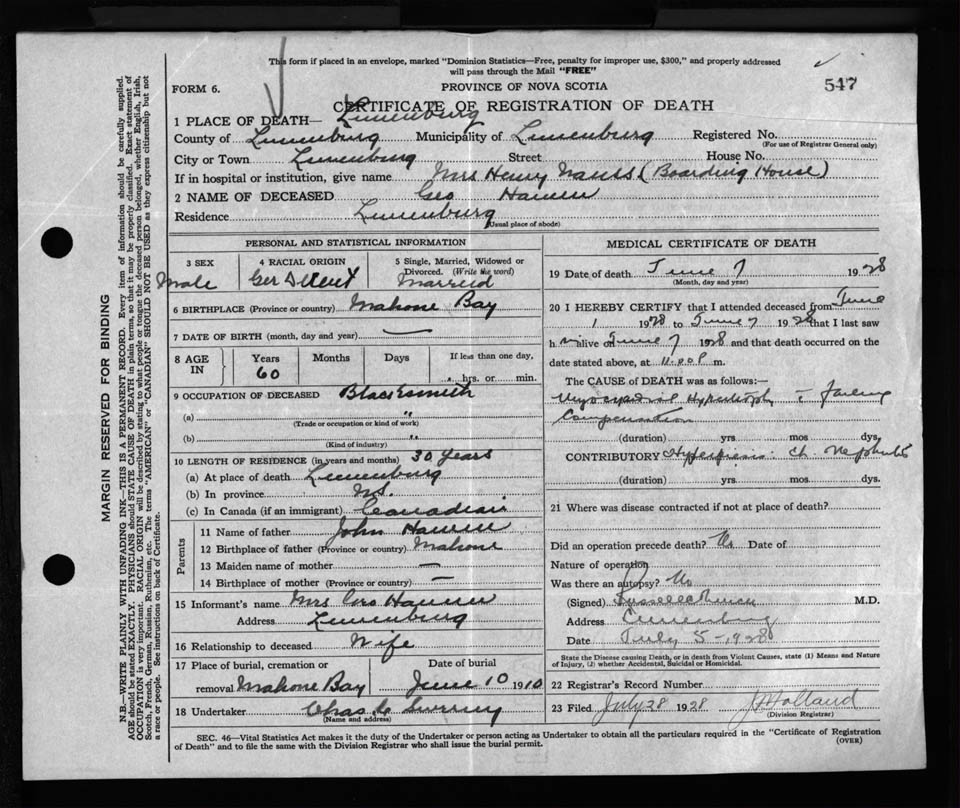 This form if placed in an envelope, marked "Dominion Statistics—Free, penalty for improper use, $300," and properly addressed
will pass through the Mail "FREE"
547
FORM 6.
PROVINCE OF NOVA SCOTIA
CERTIFICATE OF REGISTRATION OF DEATH
1 PLACE OF DEATH— Lunenburg
County of Lunenburg Municipality of Lunenburg Registered No.
(For use of Registrar General only)
City or Town Lunenburg Street House No.
If in hospital or institution, give name Mrs Henry (Boarding House)
2 NAME OF DECEASED Geo
Residence Lunenburg
(Usual place of abode)
MARGIN RESERVED FOR BINDING
N.B.—WRITE PLAINLY WITH UNFADING INK—THIS IS A PERMANENT RECORD. Every item of information should be carefully supplied.
AGE should be stated EXACTLY. PHYSICIANS should STATE CAUSE OF DEATH in plain terms, so that it may be properly classified. Exact statement of
OCCUPATION is very important. RACIAL ORIGIN will be described by stating to what people or tongue the deceased person belonged, whether English, Irish,
Scotch, French, German, Russian, Ruthenian, etc. The terms "AMERICAN" or "CANADIAN" SHOULD NOT BE USED as they express citizenship but not
a race or people. See instructions on back of Certificate.
PERSONAL AND STATISTICAL INFORMATION
3 SEX
Male
4 RACIAL ORIGIN
Ger
5 Single, Married, Widowed or
Divorced. (Write the word)
Married
6 BIRTHPLACE (Province or country) Mahone Bay
7 DATE OF BIRTH (month, day and year) —
8 AGE
IN
Years
60
Months
Days
If less than one day,
hrs. or min.
9 OCCUPATION OF DECEASED Blacksmith
(a) "
(Trade or occupation or kind of work)
(b) "
(Kind of industry)
10 LENGTH OF RESIDENCE (in years and months) 30 years
(a) At place of death Lunenburg
(b) In province N.S.
(c) In Canada (if an immigrant) Canadian
Parents
11 Name of father John
12 Birthplace of father (Province or country) Mahone
13 Maiden name of mother —
14 Birthplace of mother (Province or country) —
15 Informant's name Mrs Geo
Address Lunenburg
16 Relationship to deceased Wife
17 Place of burial, cremation or
removal Mahone Bay
Date of burial
June 10 1910
18 Undertaker Chas
(Name and address)
MEDICAL CERTIFICATE OF DEATH
19 Date of death June 7 1928
(Month, day and year)
20 I HEREBY CERTIFY that I attended deceased from June
1 1928 to June 7 1928 that I last saw
h im alive on June 7 1928 and that death occurred on the
date stated above, at 11.00 P m.
The CAUSE of DEATH was as follows:—
Myocardial Hypertrophy failing
Compensation
(duration) yrs. mos. dys.
CONTRIBUTORY ch. Nephritis
(duration) yrs. mos. dys.
21 Where was disease contracted if not at place of death?
Did an operation precede death? No Date of
Nature of operation
Was there an autopsy? No
(Signed) M.D.
Address Lunenburg
Date July 5-1928
State the Disease causing Death, or in death from Violent Causes, state (1) Means and Nature
of Injury, (2) whether Accidental, Suicidal or Homicidal.
22 Registrar's Record Number
23 Filed July 28 1928 Holland
(Division Registrar)
SEC. 46—Vital Statistics Act makes it the duty of the Undertaker or person acting as Undertaker to obtain all the particulars required in the "Certificate of Registration
of Death" and to file the same with the Division Registrar who shall issue the burial permit.
(OVER)